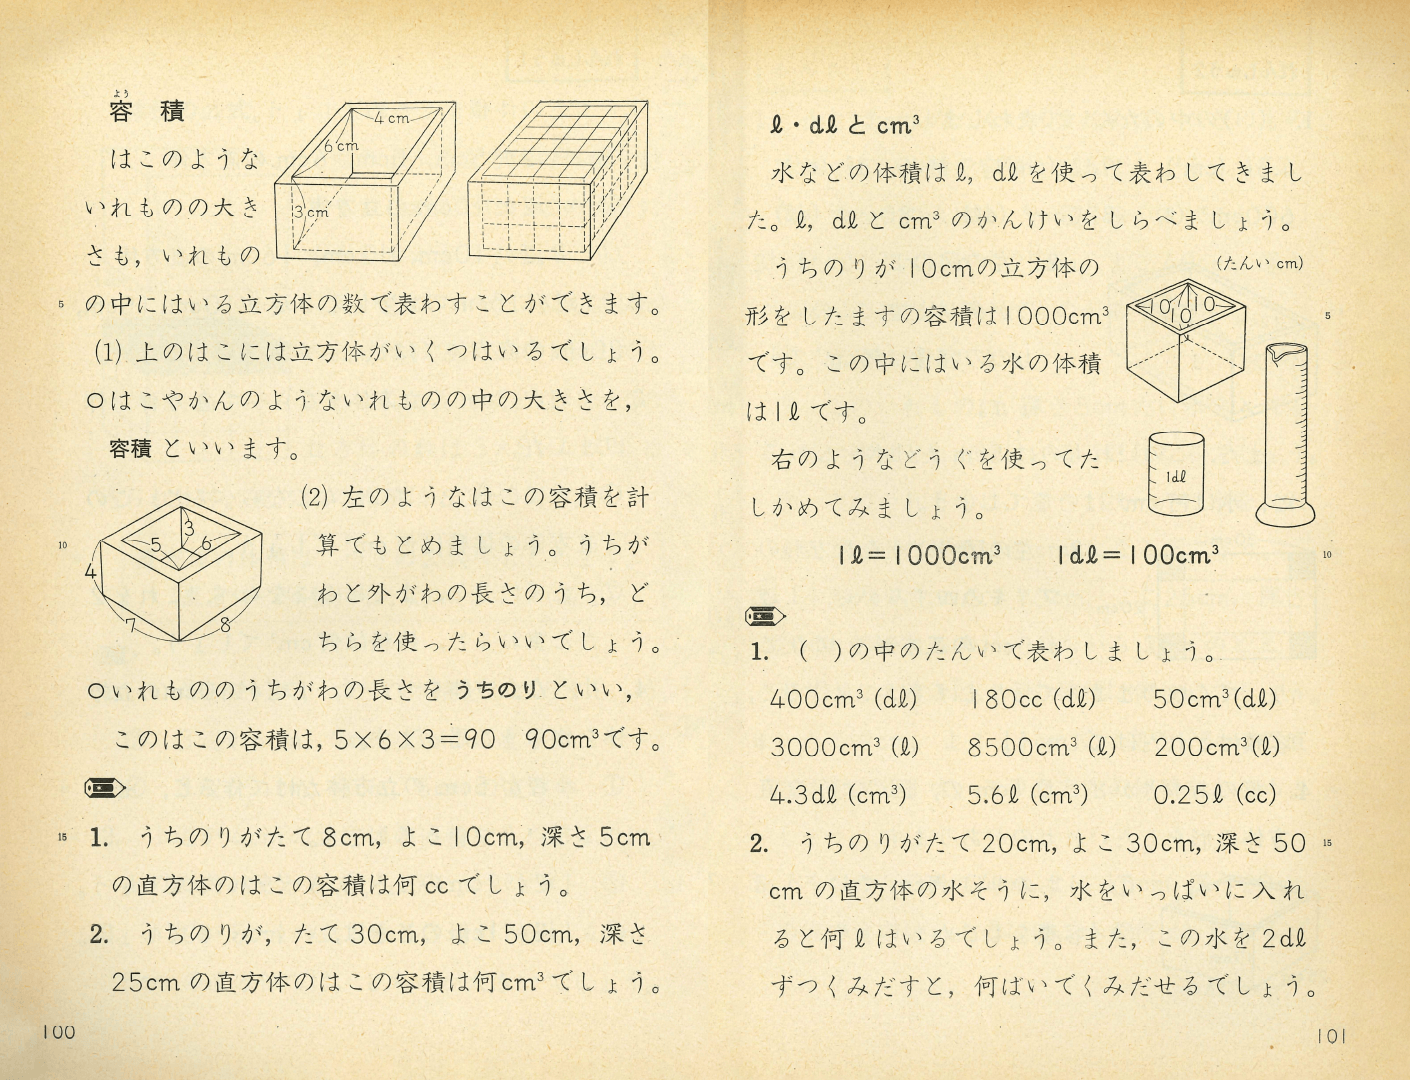 よう
容 積
はこのような
いれものの大き
さも，いれもの
の中にはいる立方体の数で表わすことができます。
5
(1) 上のはこには立方体がいくつはいるでしょう。
○はこやかんのようないれものの中の大きさを，
容積 といいます。
4cm
6cm
3cm
(2) 左のようなはこの容積を計
算でもとめましょう。うちが
10
わと外がわの長さのうち，ど
ちらを使ったらいいでしょう。
3
5 6
4
7 8
○いれもののうちがわの長さを うちのり といい，
このはこの容積は，5×6×3=90 90cm³です。
1. うちのりがたて8cm，よこ10cm，深さ5cm
15
の直方体のはこの容積は何ccでしょう。
2. うちのりが，たて30cm，よこ50cm，深さ
25cmの直方体のはこの容積は何cm³でしょう。
100
ℓ・dℓとcm³
水などの体積はℓ，dℓを使って表わしてきまし
た。ℓ，dℓとcm³のかんけいをしらべましょう。
うちのりが10cmの立方体の
形をしたますの容積は1000cm³
5
です。この中にはいる水の体積
は1ℓです。
右のようなどうぐを使ってた
しかめてみましょう。
(たんい cm)
10 10
10
1dℓ
1ℓ=1000cm³ 1dℓ=100cm³
10
1. ( )の中のたんいで表わしましょう。
400cm³ (dℓ) 180cc (dℓ) 50cm³(dℓ)
3000cm³ (ℓ) 8500cm³ (ℓ) 200cm³(ℓ)
4.3dℓ (cm³) 5.6ℓ (cm³) 0.25ℓ (cc)
2. うちのりがたて20cm，よこ30cm，深さ50
15
cmの直方体の水そうに，水をいっぱいに入れ
ると何ℓはいるでしょう。また，この水を2dℓ
ずつくみだすと，何ばいでくみだせるでしょう。
101